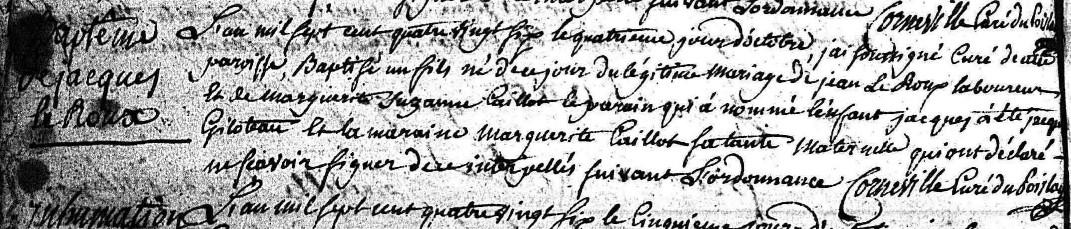 suivant Lordonnance Corneville Curé du Poislay
Baptême
de jacques
le Roux
L'an mil sept cent quatre vingt six le quatrieme jour d'octobre, jai soussigné Curé de cette
paroisse, Baptisé un fils né de ce jour du légitime mariage de jean Le Roux laboureur
Et de Marguerite Suzanne Caillot le parain qui á nommé l'enfant jacques á été jacques
Giloteau Et la maraine Marguerite Caillot sa tante Maternelle qui ont déclaré
ne scavoir signer de ce interpellés suivant L'ordonnance Corneville Curé du Poislay
Inhumation
L'an mil sept cent quatre vingt six le Cinquieme jour